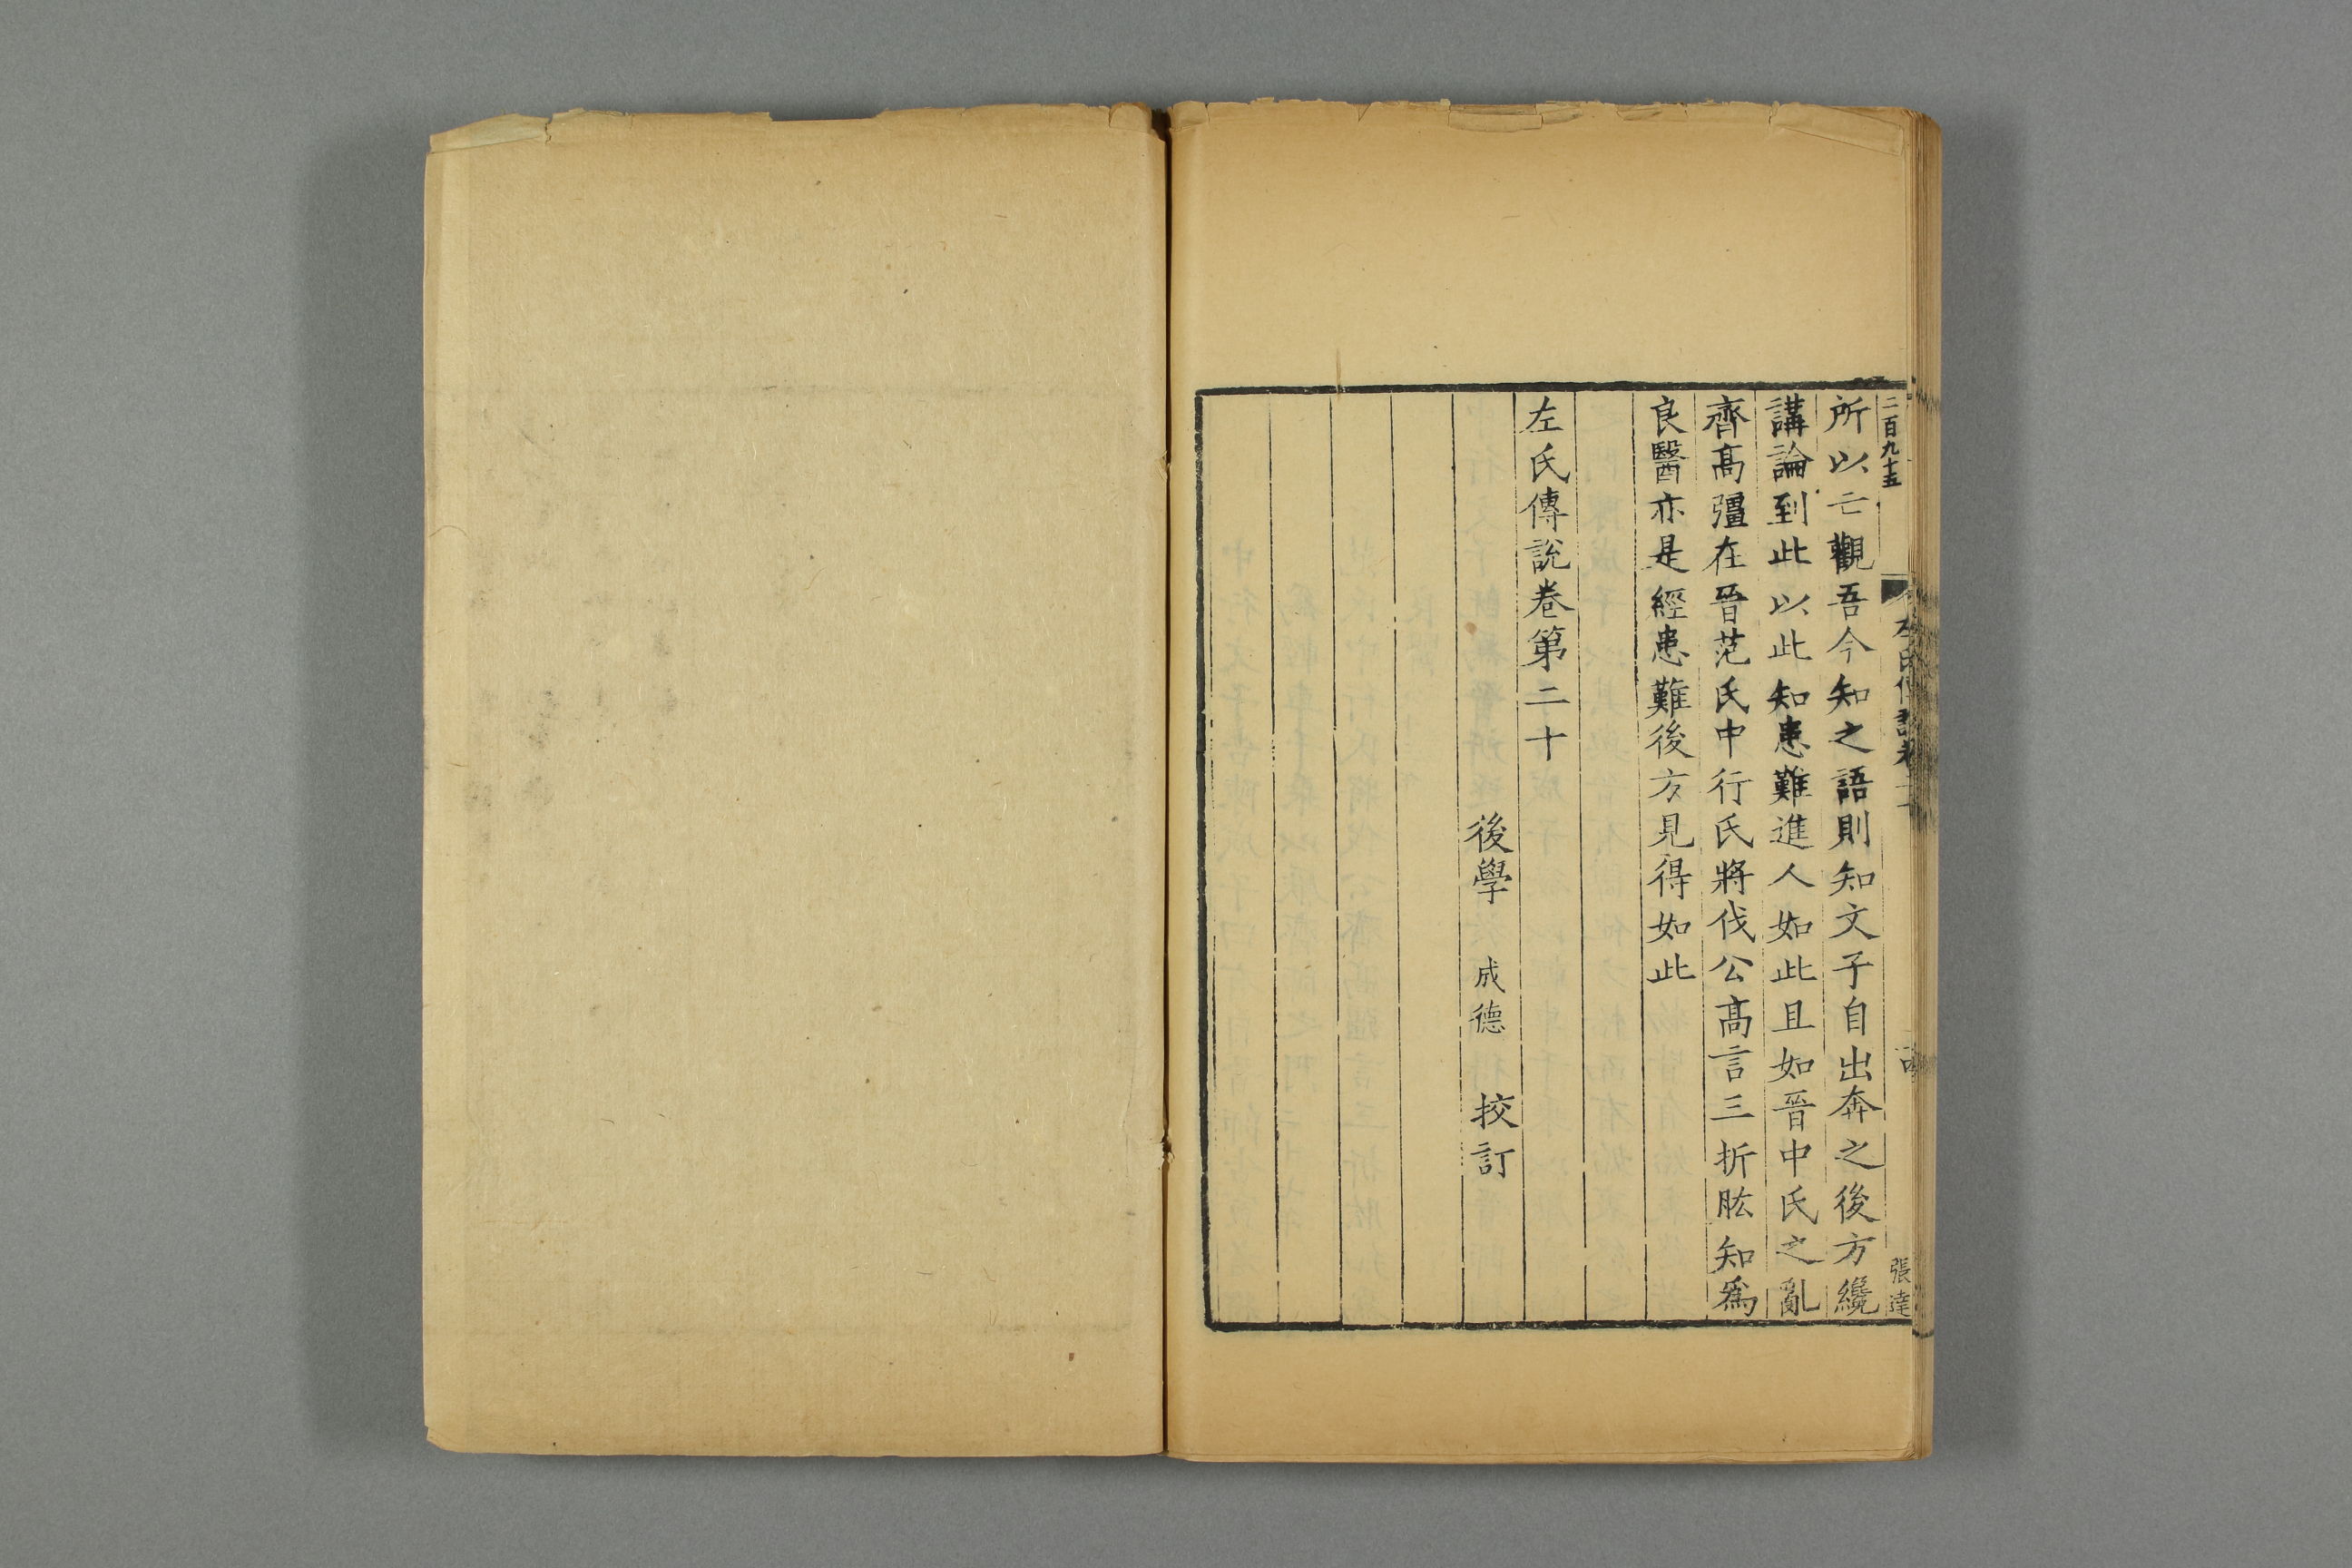 二百九十五
張達
所以亡觀吾今知之語則知文子自出奔之後方纔
講論到此以此知患難進人如此且如晉中氏之亂
齊高彊在晉范氏中行氏將伐公高言三折肱知爲
良醫亦是經患難後方見得如此
左氏傳說卷第二十
後學 成德 挍訂